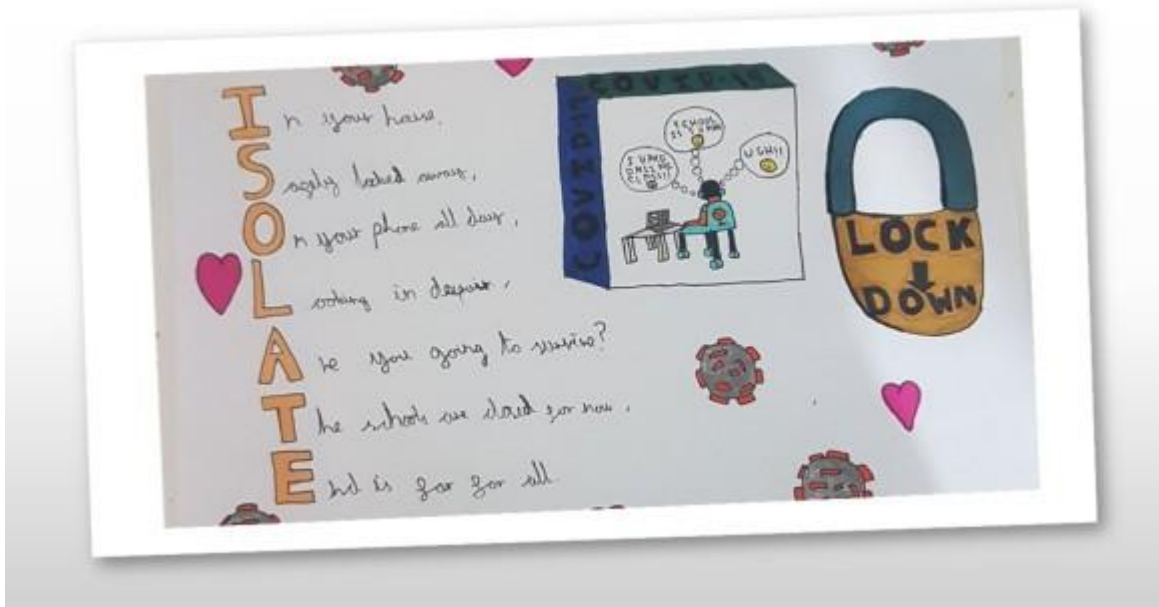 In your house,
Safely locked away,
On your phone all day,
Looking in despair,
Are you going to survive?
The schools are closed for now,
End is far for all.
COVID-19
COVID-19
SCHOOL
IS
UGH!!
LOCK
DOWN